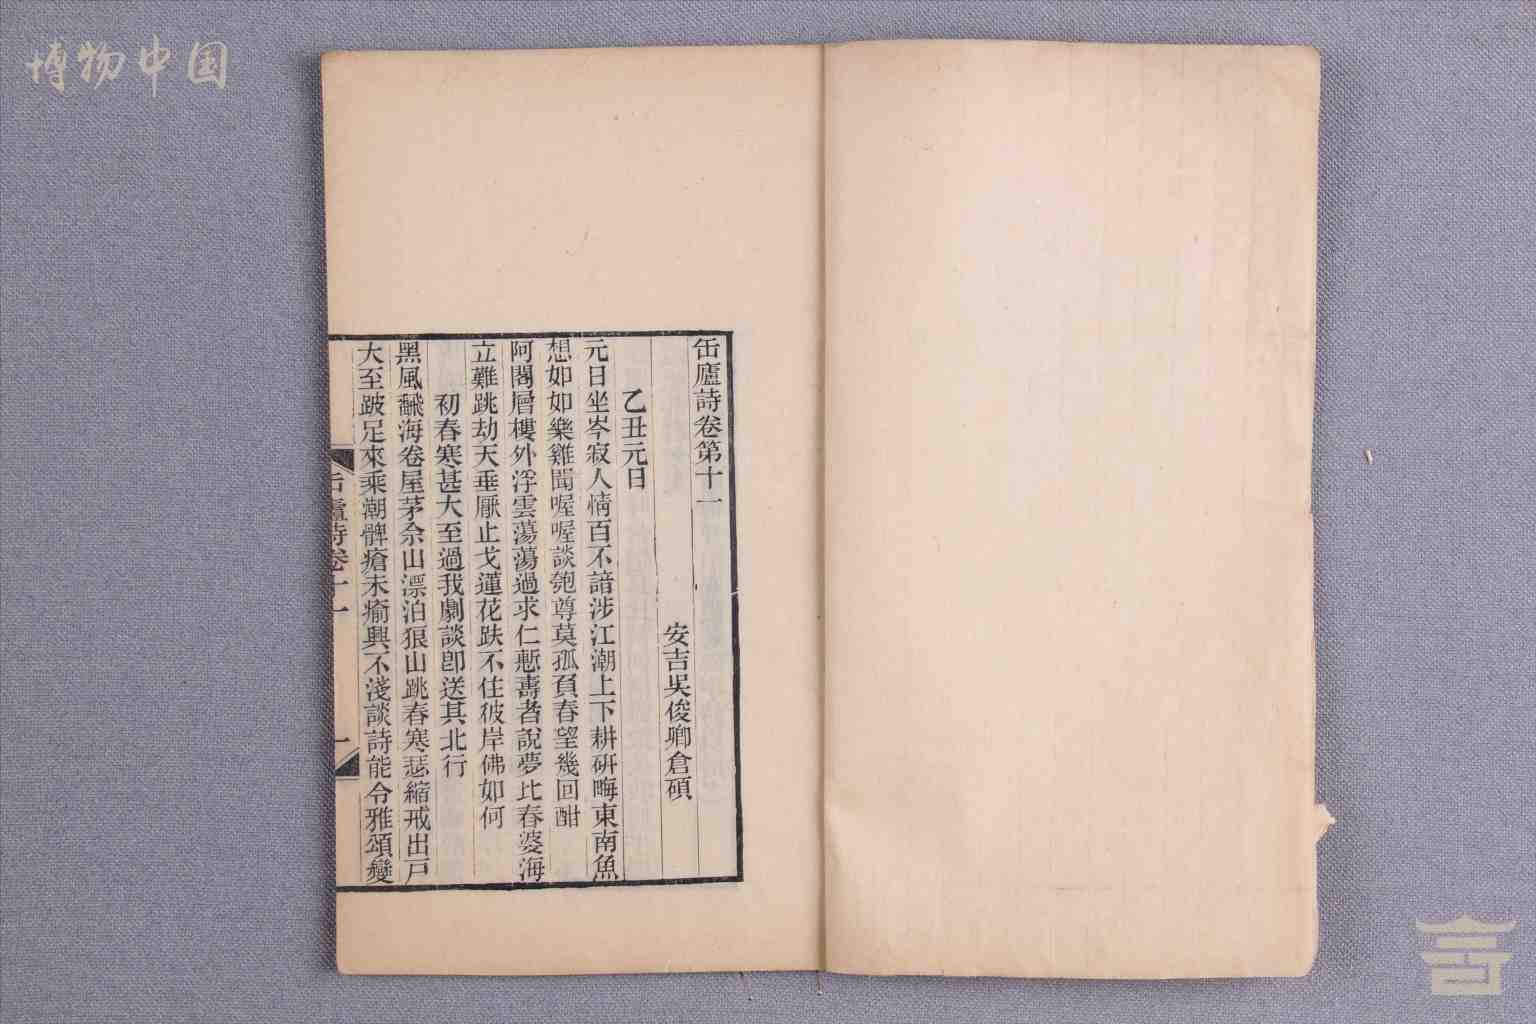 博物中国
缶廬詩卷第十一
安吉吳俊卿倉碩
乙丑元日
元日坐岑寂人情百不諳涉江潮上下耕研畮東南魚
想如如樂雞聞喔喔談匏尊莫孤負春望幾回酣
阿閣層樓外浮雲蕩蕩過求仁慙壽者說夢比春婆海
立難跳劫天垂厭止戈蓮花趺不住彼岸佛如何
初春寒甚大至過我劇談卽送其北行
黑風翻海卷屋茅佘山漂泊狠山跳春寒瑟縮戒出戸
大至跛足來乘潮髀瘡未瘉興不淺談詩能令雅頌變
缶廬詩卷十一
一